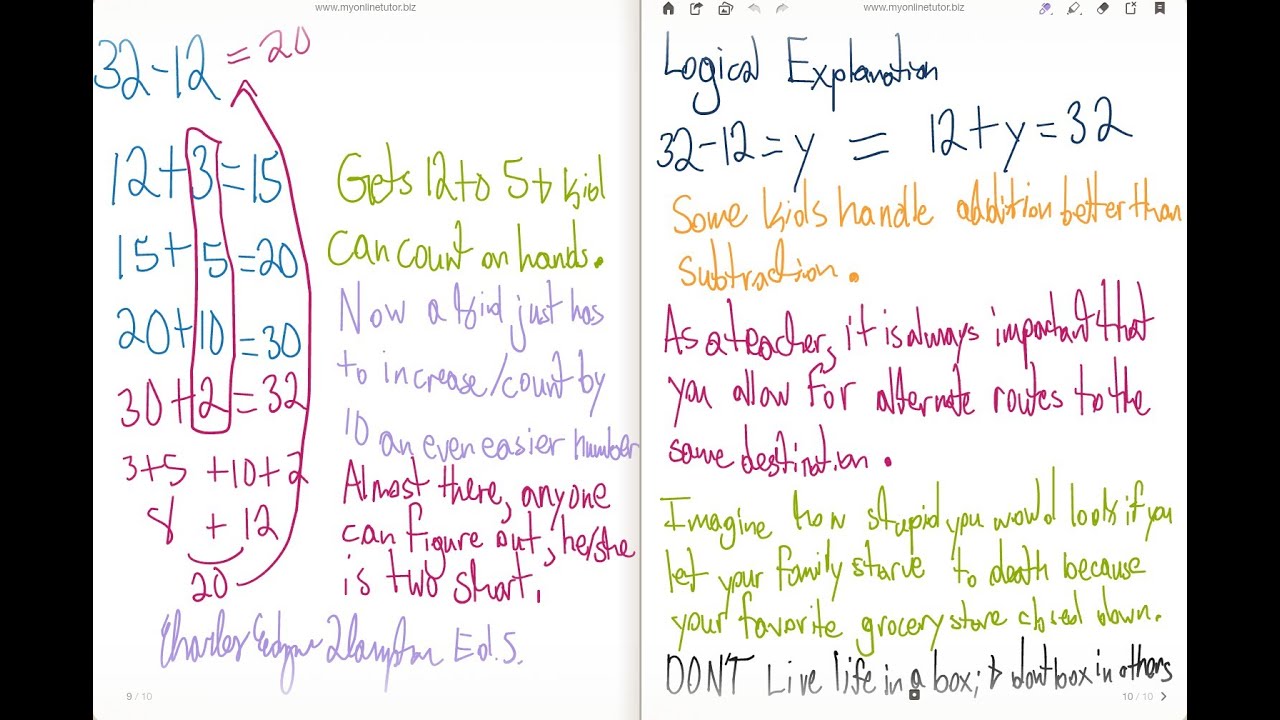 www.myonlinetutor.biz
32-12 = 20
12+3=15
15+5=20
20+10=30
30+2=32
3+5 +10+2
8 + 12
20
Gets 12 to 5 & kid
can count on hands.
Now a kid just has
to increase/count by
10 an even easier number
Almost there, anyone
can figure out, he/she
is two short.
Charles Ed.S.
9 / 10
www.myonlinetutor.biz
Logical Explanation
32-12=y = 12+y=32
Some kids handle addition better than
subtraction.
As a teacher, it is always important that
you allow for alternate routes to the
same destination.
Imagine how stupid you would look if you
let your family starve to death because
your favorite grocery store closed down.
DON'T Live life in a box; & dont box in others
10 / 10